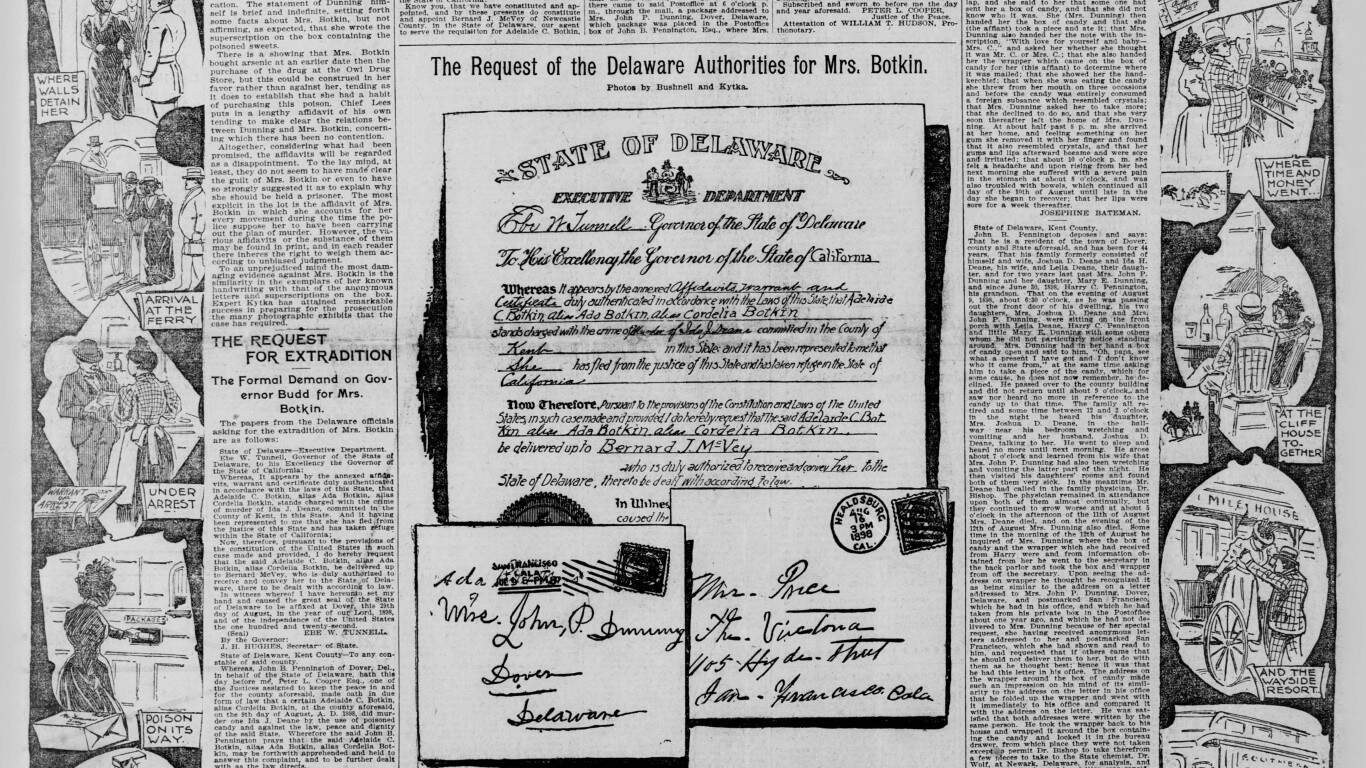 cation. The statement of Dunning him-
self is brief and indefinite, setting forth
some facts about Mrs. Botkin, but not
affirming, as expected, that she wrote the
superscription on the box containing the
poisoned sweets.
There is a showing that Mrs. Botkin
bought arsenic at an earlier date then the
purchase of the drug at the Owl Drug
Store, but this could be construed in her
favor rather than against her, tending as
it does to establish that she had a habit
of purchasing this poison. Chief Lees
puts in a lengthy affidavit of his own
tending to make clear the relations be-
tween Dunning and Mrs. Botkin, concern-
ing which there has been no contention.
Altogether, considering what had been
promised, the affidavits will be regarded
as a disappointment. To the lay mind, at
least, they do not seem to have made clear
the guilt of Mrs. Botkin or even to have
so strongly suggested it as to explain why
she should be held a prisoner. The most
explicit in the lot is the affidavit of Mrs.
Botkin in which she accounts for her
every movement during the time the po-
lice suppose her to have been carrying
out the plan of murder. However, the va-
rious affidavits or the substance of them
may be found in print, and in each reader
there inheres the right to weigh them ac-
cording to unbiased judgment.
To an unprejudiced mind the most dam-
aging evidence against Mrs. Botkin is the
similarity in the exemplars of her known
handwriting with that of the anonymous
letters and superscriptions on the box.
Expert Kytka has attained remarkable
success in preparing for the prosecution
the many photographic exhibits that the
case has required.
THE REQUEST
FOR EXTRADITION
The Formal Demand on Gov-
ernor Budd for Mrs.
Botkin.
The papers from the Delaware officials
asking for the extradition of Mrs. Botkin
are as follows:
State of Delaware—Executive Department.
Ebe W. Tunnell, Governor of the State of
Delaware, to his Excellency the Governor of
the State of California:
Whereas, It appears by the annexed affida-
vits, warrant and certificate duly authenticated
in accordance with the laws of this State, that
Adelaide C. Botkin, alias Ada Botkin, alias
Cordelia Botkin, stands charged with the crime
of murder of Ida J. Deane, committed in the
County of Kent, in this State. And it having
been represented to me that she has fled from
the justice of this State and has taken refuge
within the State of California;
Now, therefore, pursuant to the provisions of
the constitution of the United States in such
case made and provided, I do hereby request
that the said Adelaide C. Botkin, alias Ada
Botkin, alias Cordelia Botkin, be delivered up
to Bernard McVey, who is duly authorized to
receive and convey her to the State of Dela-
ware, there to be dealt with according to law.
In witness whereof I have hereunto set my
hand and caused the great seal of the State
of Delaware to be affixed at Dover, this 29th
day of August, in the year of our Lord, 1898,
and of the independence of the United States
the one hundred and twenty-second.
(Seal) EBE W. TUNNELL.
By the Governor:
J. H. HUGHES, Secretary of State.
State of Delaware, Kent County—To any con-
stable of said county.
Whereas, John B. Pennington of Dover, Del.,
in behalf of the State of Delaware, hath this
day before me, Peter L. Cooper Esq., one of
the Justices assigned to keep the peace in and
for the county aforesaid, made oath in due
form of law that a certain Adelaide C. Botkin,
alias Cordelia Botkin, at the county aforesaid,
on the 9th day of August, A. D. 1898, did mur-
der one Ida J. Deane by the use of poisoned
candy and against the law, peace and dignity
of the said State. Wherefore the said John B.
Pennington prays that the said Adelaide C.
Botkin, alias Ada Botkin, alias Cordelia Bot-
kin, may be forthwith apprehended and held to
answer this complaint, and to be further dealt
with as the law directs.
Know you, that we have constituted and ap-
pointed, and by the presents do constitute
and appoint Bernard J. McVey of Newcastle
County, in the State of Delaware, our agent
to serve the requisition for Adelaide C. Botkin,
there came to said Postoffice at 6 o'clock p.
m., through the mail, a package addressed to
Mrs. John P. Dunning, Dover, Delaware,
which package was placed in the Postoffice
box of John B. Pennington, Esq., where Mrs.
Subscribed and sworn to before me the day
and year aforesaid. PETER L. COOPER,
Justice of the Peace.
Attestation of WILLIAM T. HUDSON, Pro-
thonotary.
The Request of the Delaware Authorities for Mrs. Botkin.
Photos by Bushnell and Kytka.
STATE OF DELAWARE
EXECUTIVE DEPARTMENT
Ebe W Tunnell, Governor of the State of Delaware
To His Excellency, the Governor of the State of California
Whereas It appears by the annexed Affidavits, warrant and
Certificate duly authenticated in accordance with the Laws of this State, that Adelaide
C Botkin, alias Ada Botkin, alias Cordelia Botkin
stands charged with the crime of Murder of Ida J. Deane committed in the County of
Kent in this State: and it has been represented to me that
She has fled from the justice of this State and has taken refuge in the State of
California
Now Therefore, Pursuant to the provisions of the Constitution and Laws of the United
States, in such case made and provided, I do hereby request that the said Adelaide C Bot
kin alias Ada Botkin, alias Cordelia Botkin
be delivered up to Bernard J. McVey
who is duly authorized to receive and convey her to the
State of Delaware, there to be dealt with according to law.
In Witness
caused th
HEALDSBURG
AUG
16
3 PM
1898
CAL.
SAN FRANCISCO
CAL.
Ada
Mrs. John, P. Dunning
Dover
Delaware
Mr. Price
The Victoria
405 Hyde Street
San Francisco Cala
lap, and she said to her that some one had
sent her a box of candy, and that she did not
know who it was. She (Mrs. Dunning) then
handed her the box of candy and that she
(the affiant) took a piece and ate it; that Mrs.
Dunning also handed her the note with the in-
scription, "With love for yourself and baby—
Mrs. C.," and asked her whether she thought
it was Mr. C. or Mrs. C.; that she also handed
her the wrapper which came on the box of
candy for her (this affiant) to determine where
it was mailed; that she showed her the hand-
kerchief; that when she was eating the candy
she threw from her mouth on three occasions
and before the candy was entirely consumed
a foreign subsance which resembled crystals;
that Mrs. Dunning asked her to take more;
that she declined to do so, and that she very
soon thereafter left the home of Mrs. Dun-
ning. At about half past 8 p. m. she arrived
at her home, and feeling something on her
gum she removed it with her finger and found
that it also resembled crystals, and that her
gums and lips afterward became and were sore
and irritated; that about 10 o'clock p. m. she
felt a headache and upon rising from her bed
next morning she suffered with a severe pain
in the stomach at about 8 o'clock, and was
also troubled with bowels, which continued all
day of the 10th of August until late in the
day she began to recover; that her lips were
sore for a week thereafter.
JOSEPHINE BATEMAN.
State of Delaware, Kent County.
John B. Pennington deposes and says:
That he is a resident of the town of Dover,
county and State aforesaid, and has been for 44
years. That his family formerly consisted of
himself and wife, Joshua D. Deane and Ida H.
Deane, his wife, and Leila Deane, their daugh-
ter, and for two years last past Mrs. John P.
Dunning and her daughter, Mary E. Dunning,
and since June 20, 1898, Harry C. Pennington,
his grandson. That on the evening of August
9, 1898, about 6:30 o'clock, as he was passing
out the front door of his dwelling, his two
daughters, Mrs. Joshua D. Deane and Mrs.
John P. Dunning, were sitting on the front
porch with Leila Deane, Harry C. Pennington
and little Mary E. Dunning with some others
whom he did not particularly notice standing
around. Mrs. Dunning had in her hand a box
of candy open and said to him, "Oh, papa, see
what a present I have got and I don't know
who it came from," at the same time asking
him to take a piece of the candy, which for
some cause, he does not now remember, he de-
clined. He passed over to the county building
and did not return until about 9 o'clock, and
saw nor heard no more in reference to the
candy up to that time. The family all re-
tired and some time between 12 and 2 o'clock
in the night he heard his daughter,
Mrs. Joshua D. Deane, in the hall-
way near his bedroom wretching and
vomiting and her husband, Joshua D.
Deane, talking to her. He went to sleep and
heard no more until next morning. He arose
about 7 o'clock and learned from his wife that
Mrs. John P. Dunning had also been wretching
and vomiting the latter part of the night. He
went to his daughters' rooms and found
both of them very sick. In the meantime Mr.
Deane had called in the family physician, Dr.
Bishop. The physician remained in attendance
upon both of them almost continually, but
they continued to grow worse and at about 5
o'clock in the afternoon of the 11th of August
Mrs. Deane died, and on the evening of the
12th of August Mrs. Dunning also died. Some
time in the morning of the 12th of August he
inquired of Mrs. Dunning where the box of
candy and the wrapper which she had received
from Harry were and from information ob-
tained from her he went to the secretary in
the back parlor and took the box and wrapper
from off the secretary. Upon seeing the ad-
dress on wrapper he thought he recognized it
as being similar to the address on a letter
addressed to Mrs. John P. Dunning, Dover,
Delaware, and postmarked San Francisco,
which he had in his office, and which he had
taken from his private box in the Postoffice
about one year ago, and which he had not de-
livered to Mrs. Dunning because of her special
request, she having received anonymous let-
ters addressed to her and postmarked San
Francisco, which she had shown and read to
him, and requested that if others came that
he should not deliver them to her, but do with
them as he thought best; hence it was that
he had this letter in his office. The address on
the wrapper around the box of candy made
such an impression on his mind of its simil-
arity to the address on the letter in his office
that he folded up the wrapper and went with
it immediately to his office and compared it
with the address on the letter. He was sat-
isfied that both addresses were written by the
same person. He took the wrapper back to his
house and wrapped it around the box contain-
ing the candy and locked it in the bureau
drawer, from which place they were not taken
except to permit Dr. Bishop to take therefrom
a few pieces to take to the State chemist, Dr.
Wolf, at Newark, Delaware, for analysis, and
WHERE
WALLS
DETAIN
HER
ARRIVAL
AT THE
FERRY
WARRANT
ARREST
UNDER
ARREST
PACKAGES
POISON
ON ITS
WAY.
WHERE
TIME AND
MONEY
WENT...
AT THE
CLIFF
HOUSE
TO-
GETHER
MILE HOUSE
AND THE
WAYSIDE
RESORT.